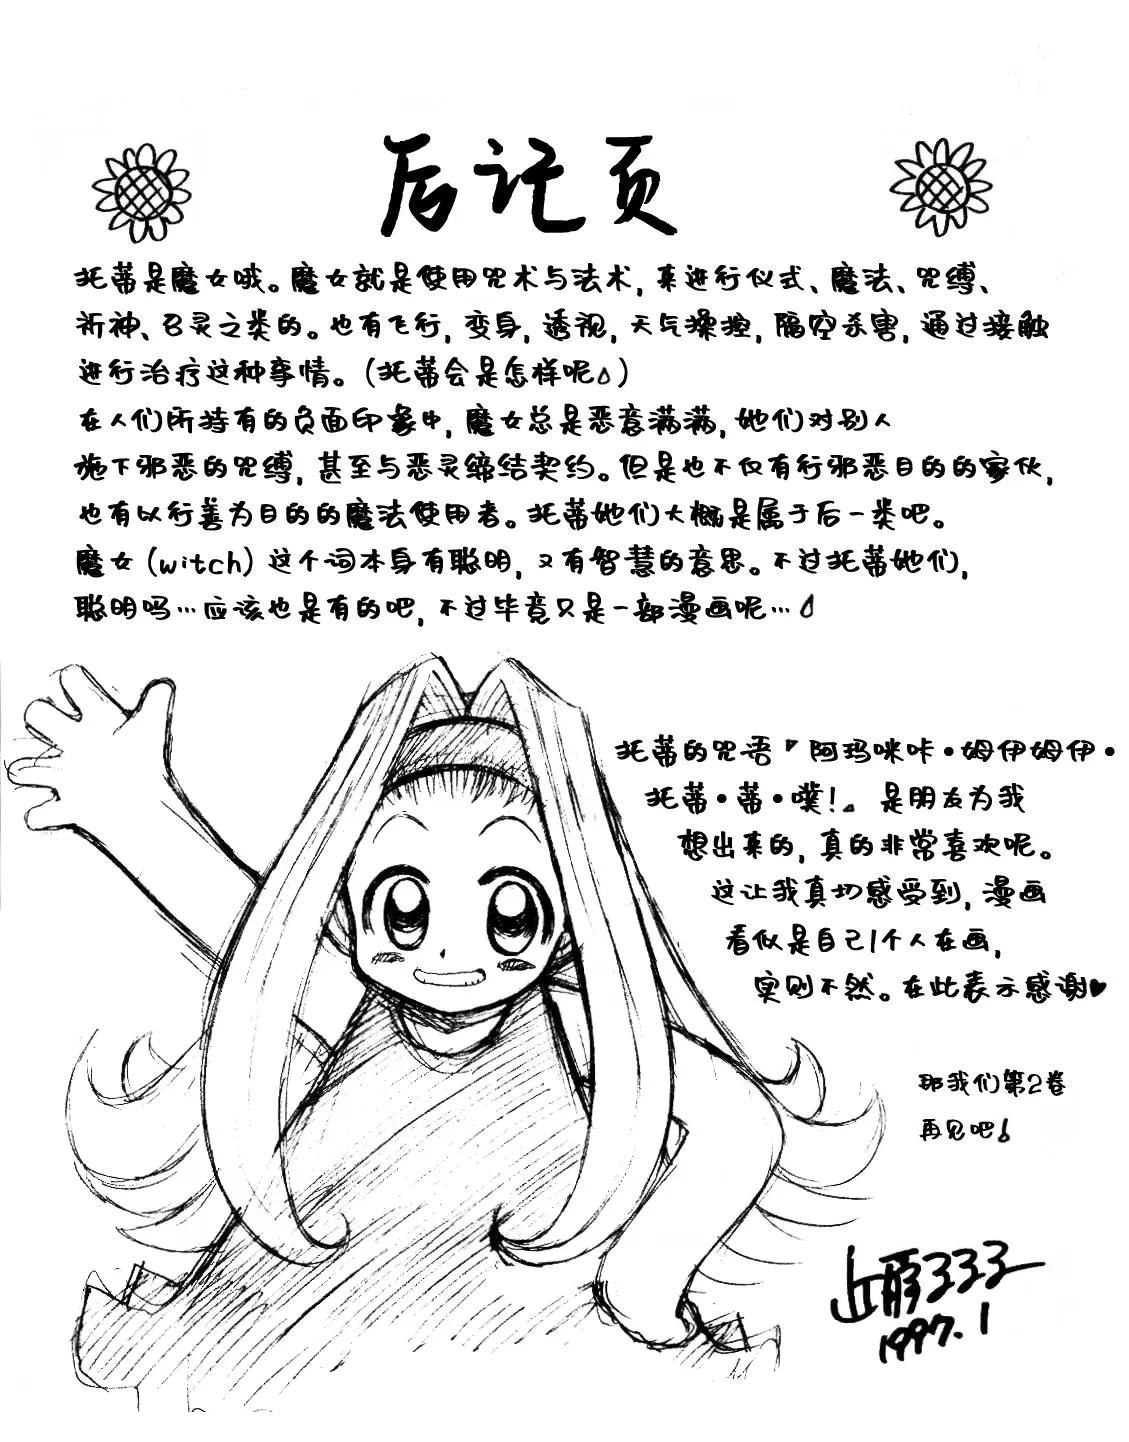 后记页
托蒂是魔女哦。魔女就是使用咒术与法术，来进行仪式、魔法、咒缚、
祈神、召灵之类的。也有飞行，变身，透视，天气操控，隔空杀害，通过接触
进行治疗这种事情。（托蒂会是怎样呢）
在人们所持有的负面印象中，魔女总是恶意满满，她们对别人
施下邪恶的咒缚，甚至与恶灵缔结契约。但是也不仅有行邪恶目的的家伙，
也有以行善为目的的魔法使用者。托蒂她们大概是属于后一类吧。
魔女（witch）这个词本身有聪明，又有智慧的意思。不过托蒂她们，
聪明吗…应该也是有的吧，不过毕竟只是一部漫画呢…
托蒂的咒语『阿玛咪咔·姆伊姆伊·
托蒂·蒂·噗！。是朋友为我
想出来的，真的非常喜欢呢。
这让我真切感受到，漫画
看似是自己1个人在画，
实则不然。在此表示感谢♥
那我们第2卷
再见吧！
1997.1